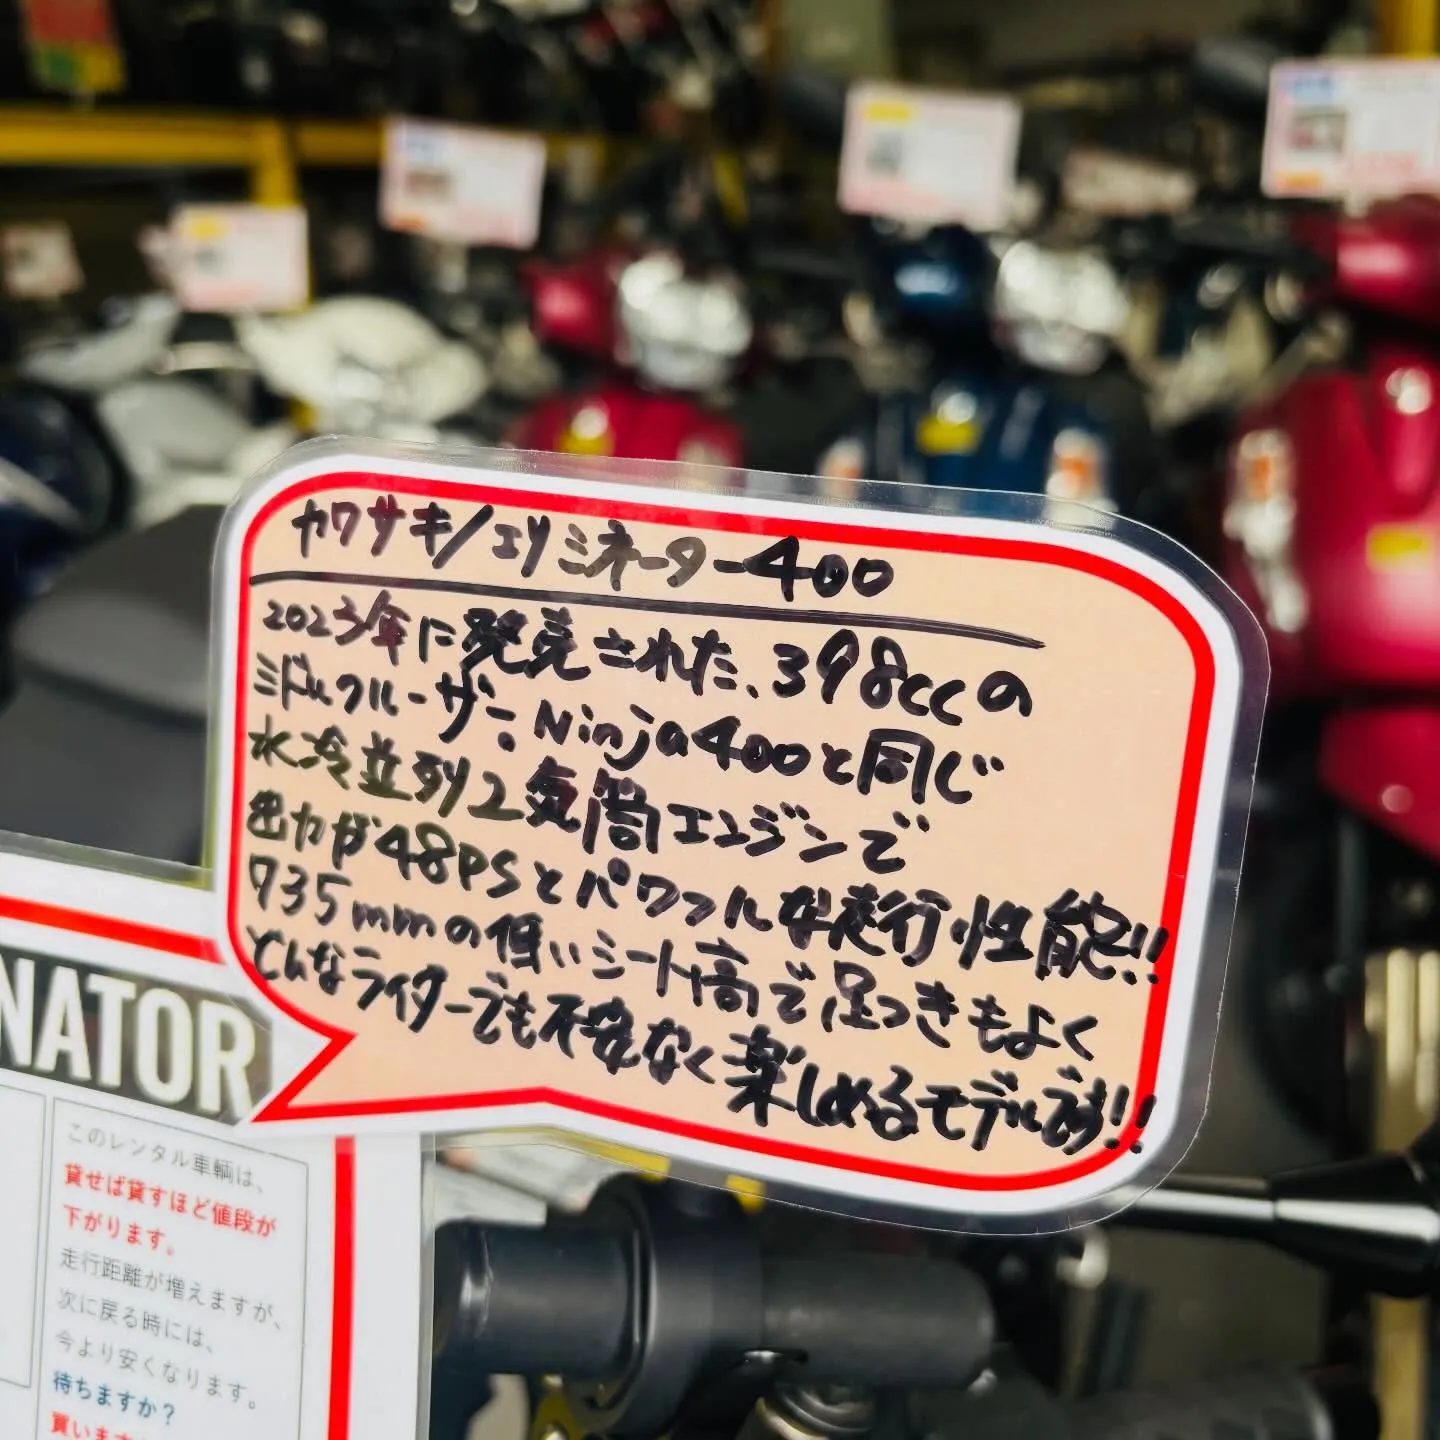 カワサキ/エリミネーター400
2023年に発売された、398ccの
ミドルクルーザー！Ninja400と同じ
水冷並列2気筒エンジンで
出力が48PSとパワフルな走行性能!!
735mmの低いシート高で足つきもよく
どんなライダーでも不安なく楽しめるモデルです!!
NATOR
このレンタル車輌は、
貸せば貸すほど値段が
下がります。
走行距離が増えますが、
次に戻る時には、
今より安くなります。
待ちますか？
買いま